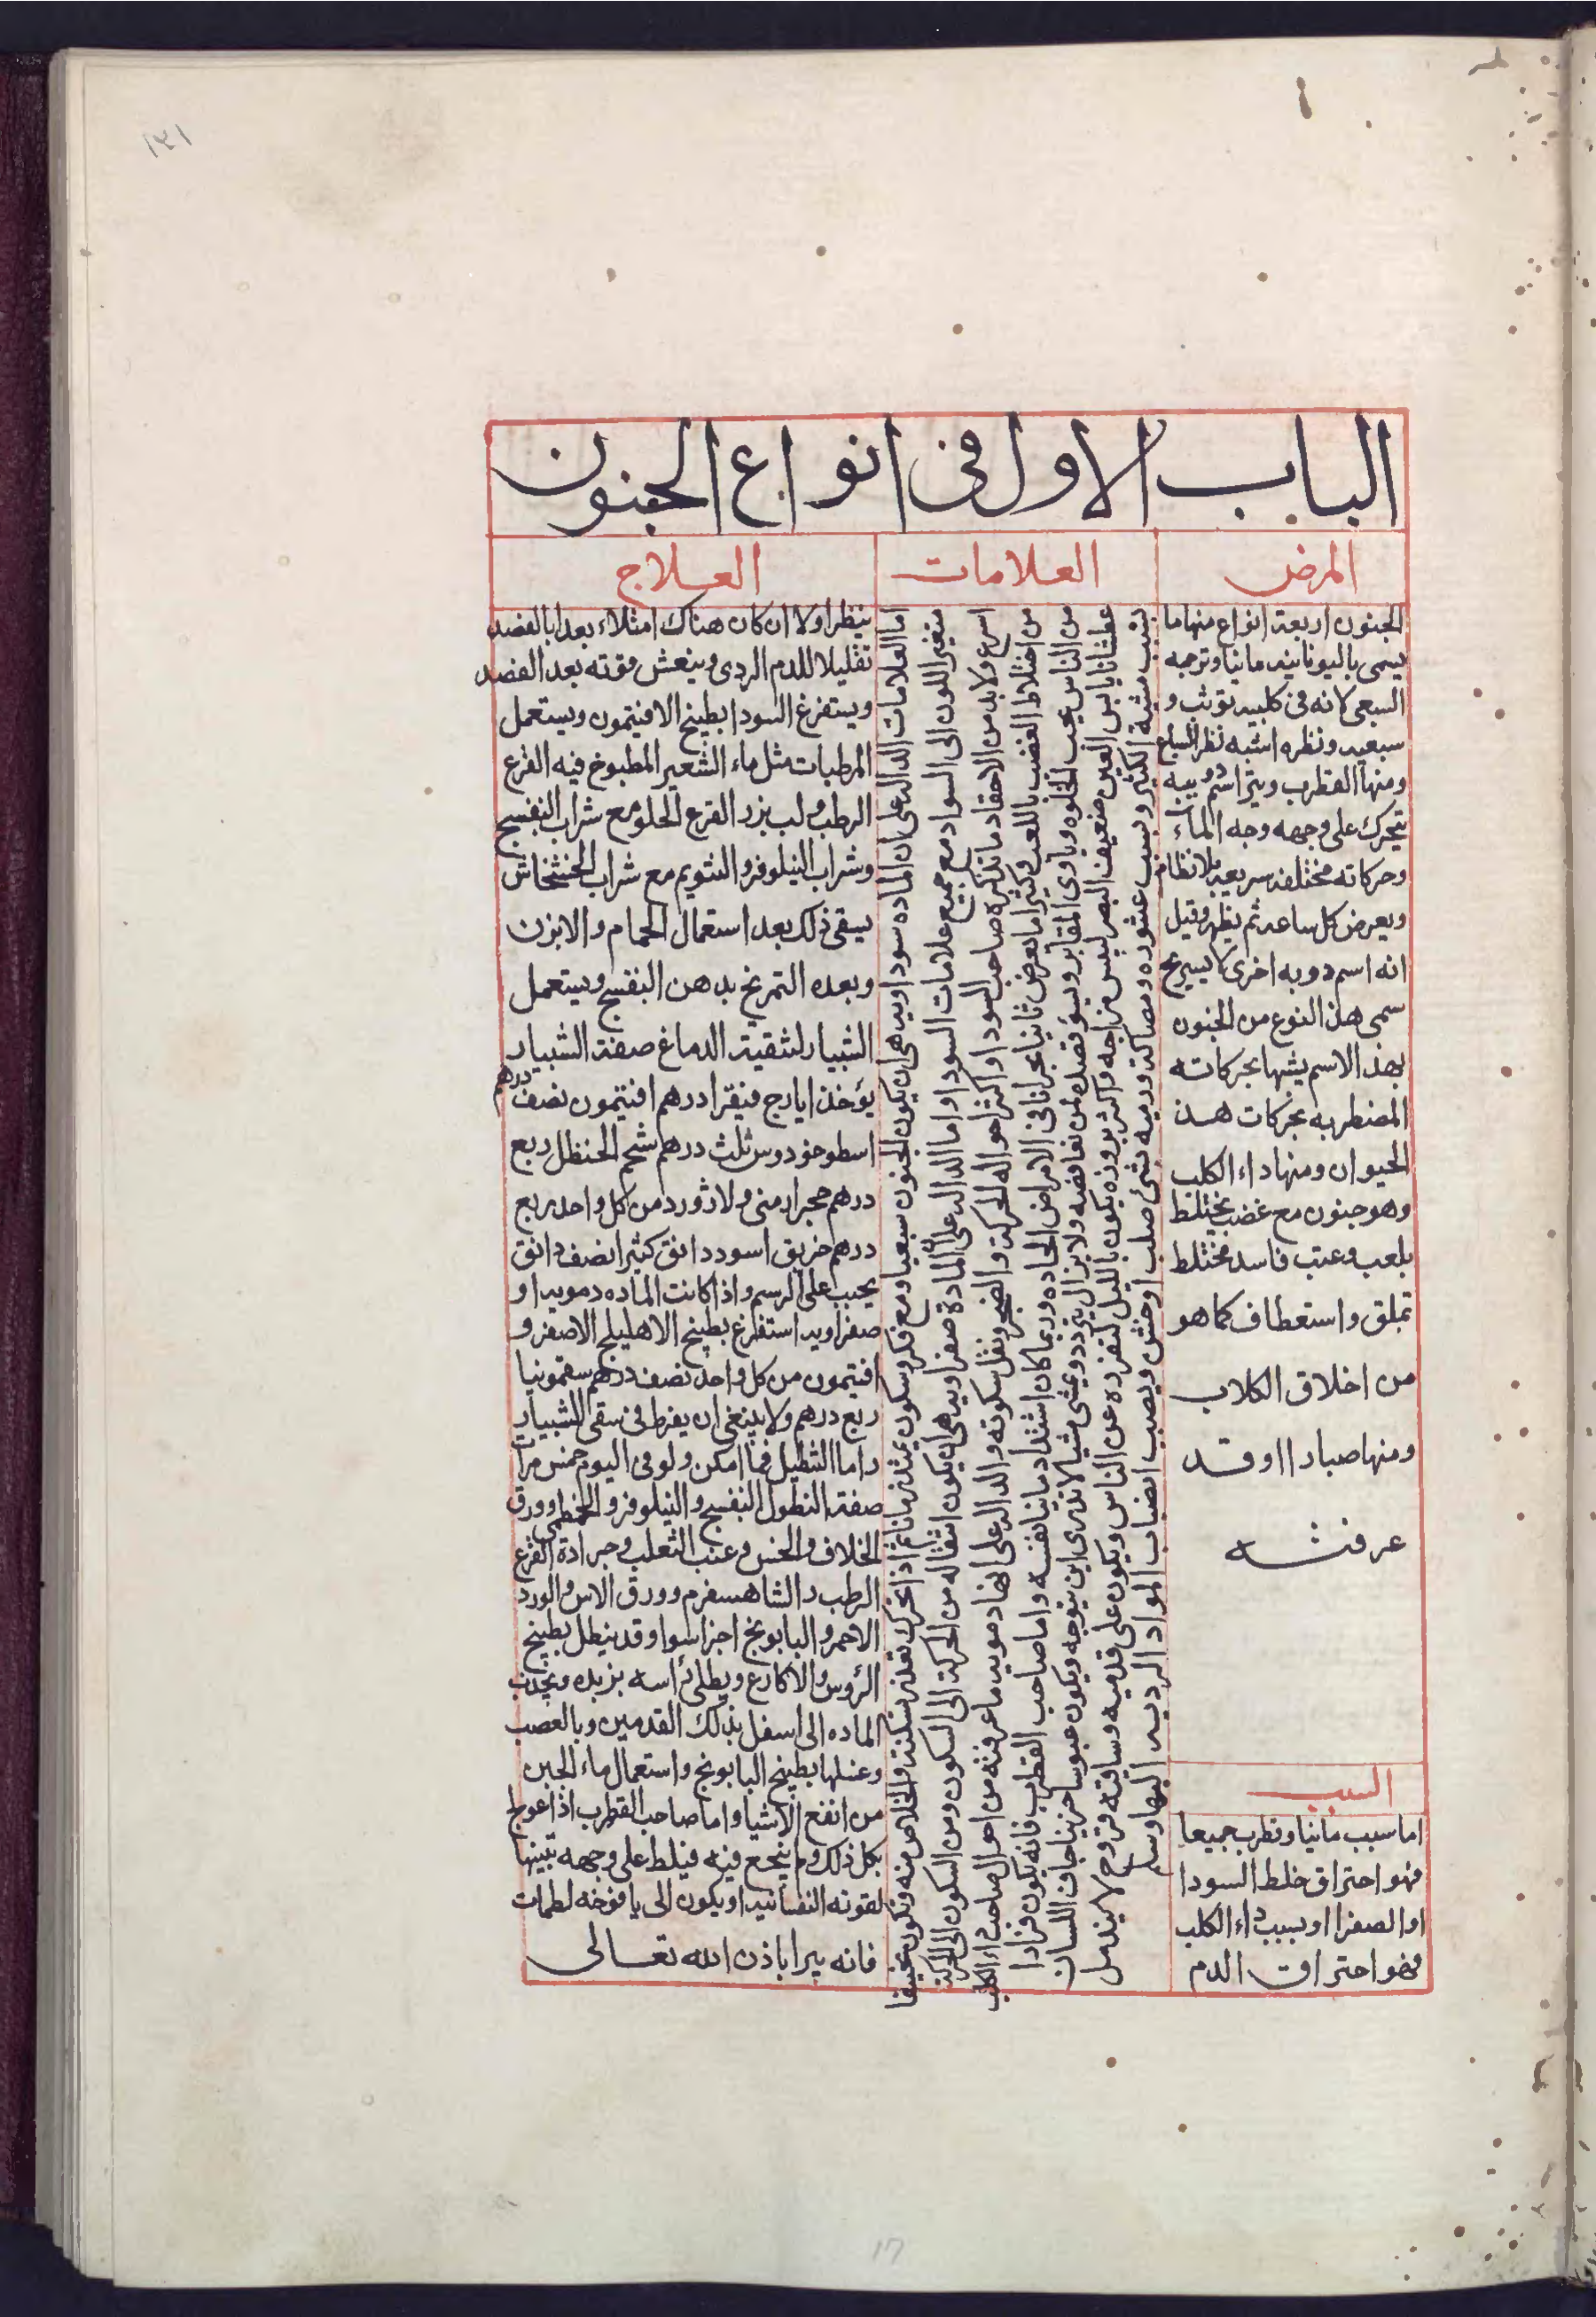 ١٣١
الباب الاول فى انواع الجنون
المرض
الجنون اربعة انواع منها ما
يسمى باليونانيه مانيا وترجمه
السبعى لانه فى كلبيه توثب و
سبعيه ونظره اشبه نظر السباع
ومنها القطرب ويترا اسم دويبه
تتحرك على وجهه وجه الماء
وحركاته مختلفه سريعه بلا نظام
ويعرض كل ساعه ثم يظهر وقيل
انه اسم دوبه اخرى لا يستريح
سمى هذا النوع من الجنون
بهذا الاسم يشبها بحركاته
المضطربه بحركات هذ
الحيوان ومنها داء الكلب
وهو جنون مع غضب يختلط
بلعب وعتب فاسد مختلط
تملق واستعطاف كما هو
من اخلاق الكلاب
ومنها صبارا وقد
عرفته
السبب
اما سبب مانيا وقطرب جميعا
فهو احتراق خلط السودا
او الصفرا او سبب داء الكلب
فهو احتراق الدم
العلامات
اما العلامات الداله على ان الماده سوداويه هى ان يكون الجنون سبعيا ومع فكر وسكون يمتد زمانا ثم اذا تحرك تعذر سكنته والخلاص منه وتكون نحيفا
متغير اللون الى السواد مع جميع علامات السودا واما الداله على ان المادة صفراويه هى ان يكون انتقاله من الحركة الى السكون ومن السكون الى الحركة
اسرع ولابد من الاحقاد ما تذكره صاحب السودا واكثر احواله الحركة والضجر وتقل سكونه والداله على انها دمويه ما عرفته من احوال صاحب داء الكلب
من اختلاط الغضب باللعب وكثيرا ما يعرض ثانيا بحرانا فى الامراض الحاده وربما كان اشتداد مانيا نفسه واما صاحب القطرب فانه يكون فرارا
من الناس يحب الخلوه وياوى المقابر ويسؤ قصده لمن يغافضه ولا يزال يتردد ويمشى مشيا لا يدرى اين يتوجه ويكون عبوسا حزينا جاف اللسان
عطشانا يابس العين ضعيف البصر ليبس مزاجه واكثر بروزه يكون بالليل لتفرده عن الناس ويكون على قدميه وساقيه قروح لا يندمل
بسبب مشيه الكثير وبسبب عثوره ومصاكة قدميه بشئ صلب او خشن ويصبب انصباب المواد الرديه اليها وسا
العلاج
ينظر اولا ان كان هناك امتلاء بعد ابالفصد
تقليلا للدم الردى وينعش قوته بعد الفصد
ويستفرغ السودا بطبيخ الافتيمون ويستعمل
المرطبات مثل ماء الشعير المطبوخ فيه القرع
الرطب ولب بزر القرع الحلو مع شراب البنفسج
وشراب النيلوفر والتنويم مع شراب الخشخاش
يسقى ذلك بعد استعمال الحمام والابزن
وبعده التمريخ بدهن البنفسج ويستعمل
الشبيار لتنقية الدماغ صفة الشبيار
يؤخذ ايارج فيقرا درهم افتيمون نصف درهم
اسطوخودوس ثلث درهم شحم الحنظل ربع
درهم حجر ارمنى ولازورد من كل واحد ربع
درهم خربق اسود دانق كثيرا نصف دانق
يحبب على الرسم واذا كانت الماده دمويه او
صفراويه استفرغ بطبيخ الاهليلج الاصفر و
افتيمون من كل واحد نصف درهم سقمونيا
ربع درهم ولا ينبغى ان يفرط فى سقى الشبيار
واما التنطيل فما امكن ولو فى اليوم خمس مرا
صفة النطول البنفسج والنيلوفر والخطمى وورق
الخلاف والخس وعنب الثعلب وجرادة القرع
الرطب والشاهسفرم وورق الاس والورد
الاحمر والبابونج اجزا سوا وقد ينطل بطبيخ
الرؤس والاكارع ويطلى راسه بزبده ويجذب
الماده الى اسفل بذلك القدمين وبالعصب
وغسلها بطبيخ البابونج واستعمال ماء الجبن
من انفع الاشيا واما صاحب القطرب اذا عولج
بكل ذلك ولم ينجع فيه فيلط على وجهه تنبيها
لقوته النفسانيه او يكون الى يافوخه لطمات
فانه يبرا باذن الله تعالى
١٦